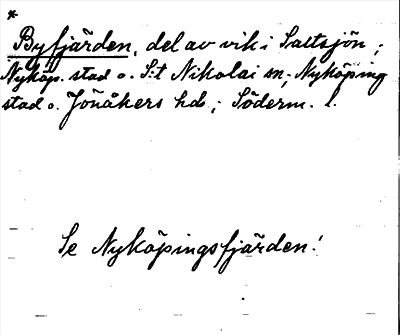 *
Byfjärden, del av vik i Saltsjön;
Nyköp. stad o. S:t Nikolai sn; Nyköping
stad o. Jönåkers hd; Söderm. l.
Se Nyköpingsfjärden!